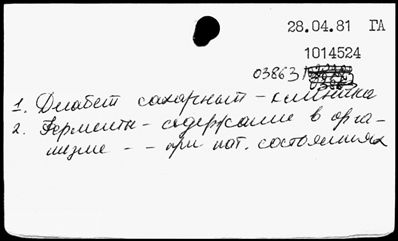 28.04.81 ГА
1014524
03863
1. Диабет сахарный - клиника
2. Ферменты - содержание в орга-
низме - - при пат. состояниях